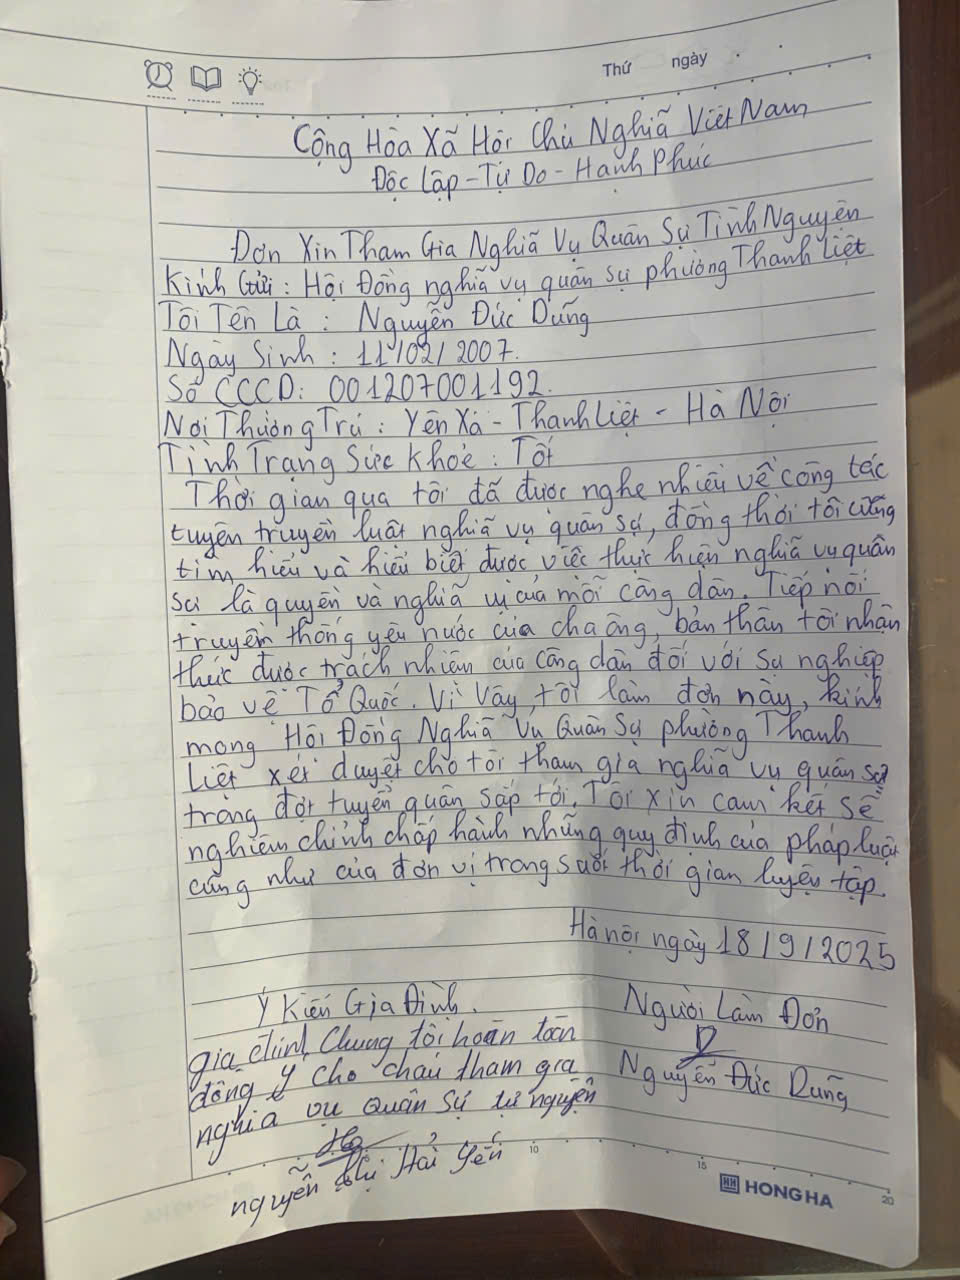 Thứ ngày
Cộng Hòa Xã Hội Chủ Nghĩa Việt Nam
Độc Lập - Tự Do - Hạnh Phúc
Đơn Xin Tham Gia Nghĩa Vụ Quân Sự Tình Nguyện
Kính Gửi : Hội Đồng nghĩa vụ quân sự phường Thanh Liệt
Tôi Tên Là : Nguyễn Đức Dũng
Ngày Sinh : 11/02/2007.
Số CCCD: 001207001192.
Nơi Thường Trú : Yên Xá - Thanh Liệt - Hà Nội
Tình Trạng Sức Khỏe : Tốt
Thời gian qua tôi đã được nghe nhiều về công tác
tuyên truyền luật nghĩa vụ quân sự, đồng thời tôi cũng
tìm hiểu và hiểu biết được việc thực hiện nghĩa vụ quân
sự là quyền và nghĩa vụ của mỗi công dân. Tiếp nối
truyền thống yêu nước của cha ông, bản thân tôi nhận
thức được trách nhiệm của công dân đối với sự nghiệp
bảo vệ Tổ Quốc. Vì Vậy, tôi làm đơn này, kính
mong Hội Đồng Nghĩa Vụ Quân Sự phường Thanh
Liệt xét duyệt cho tôi tham gia nghĩa vụ quân sự
trong đợt tuyển quân sắp tới. Tôi xin cam kết sẽ
nghiêm chỉnh chấp hành những quy định của pháp luật
cũng như của đơn vị trong suốt thời gian luyện tập.
Hà nội ngày 18/9/2025
Ý Kiến Gia Đình.
Người Làm Đơn
gia đình Chúng tôi hoàn toàn
đồng ý cho cháu tham gia
nghĩa vụ Quân Sự tự nguyện
Nguyễn Đức Dũng
nguyễn thị Hải Yến
10 15 20
HONG HA